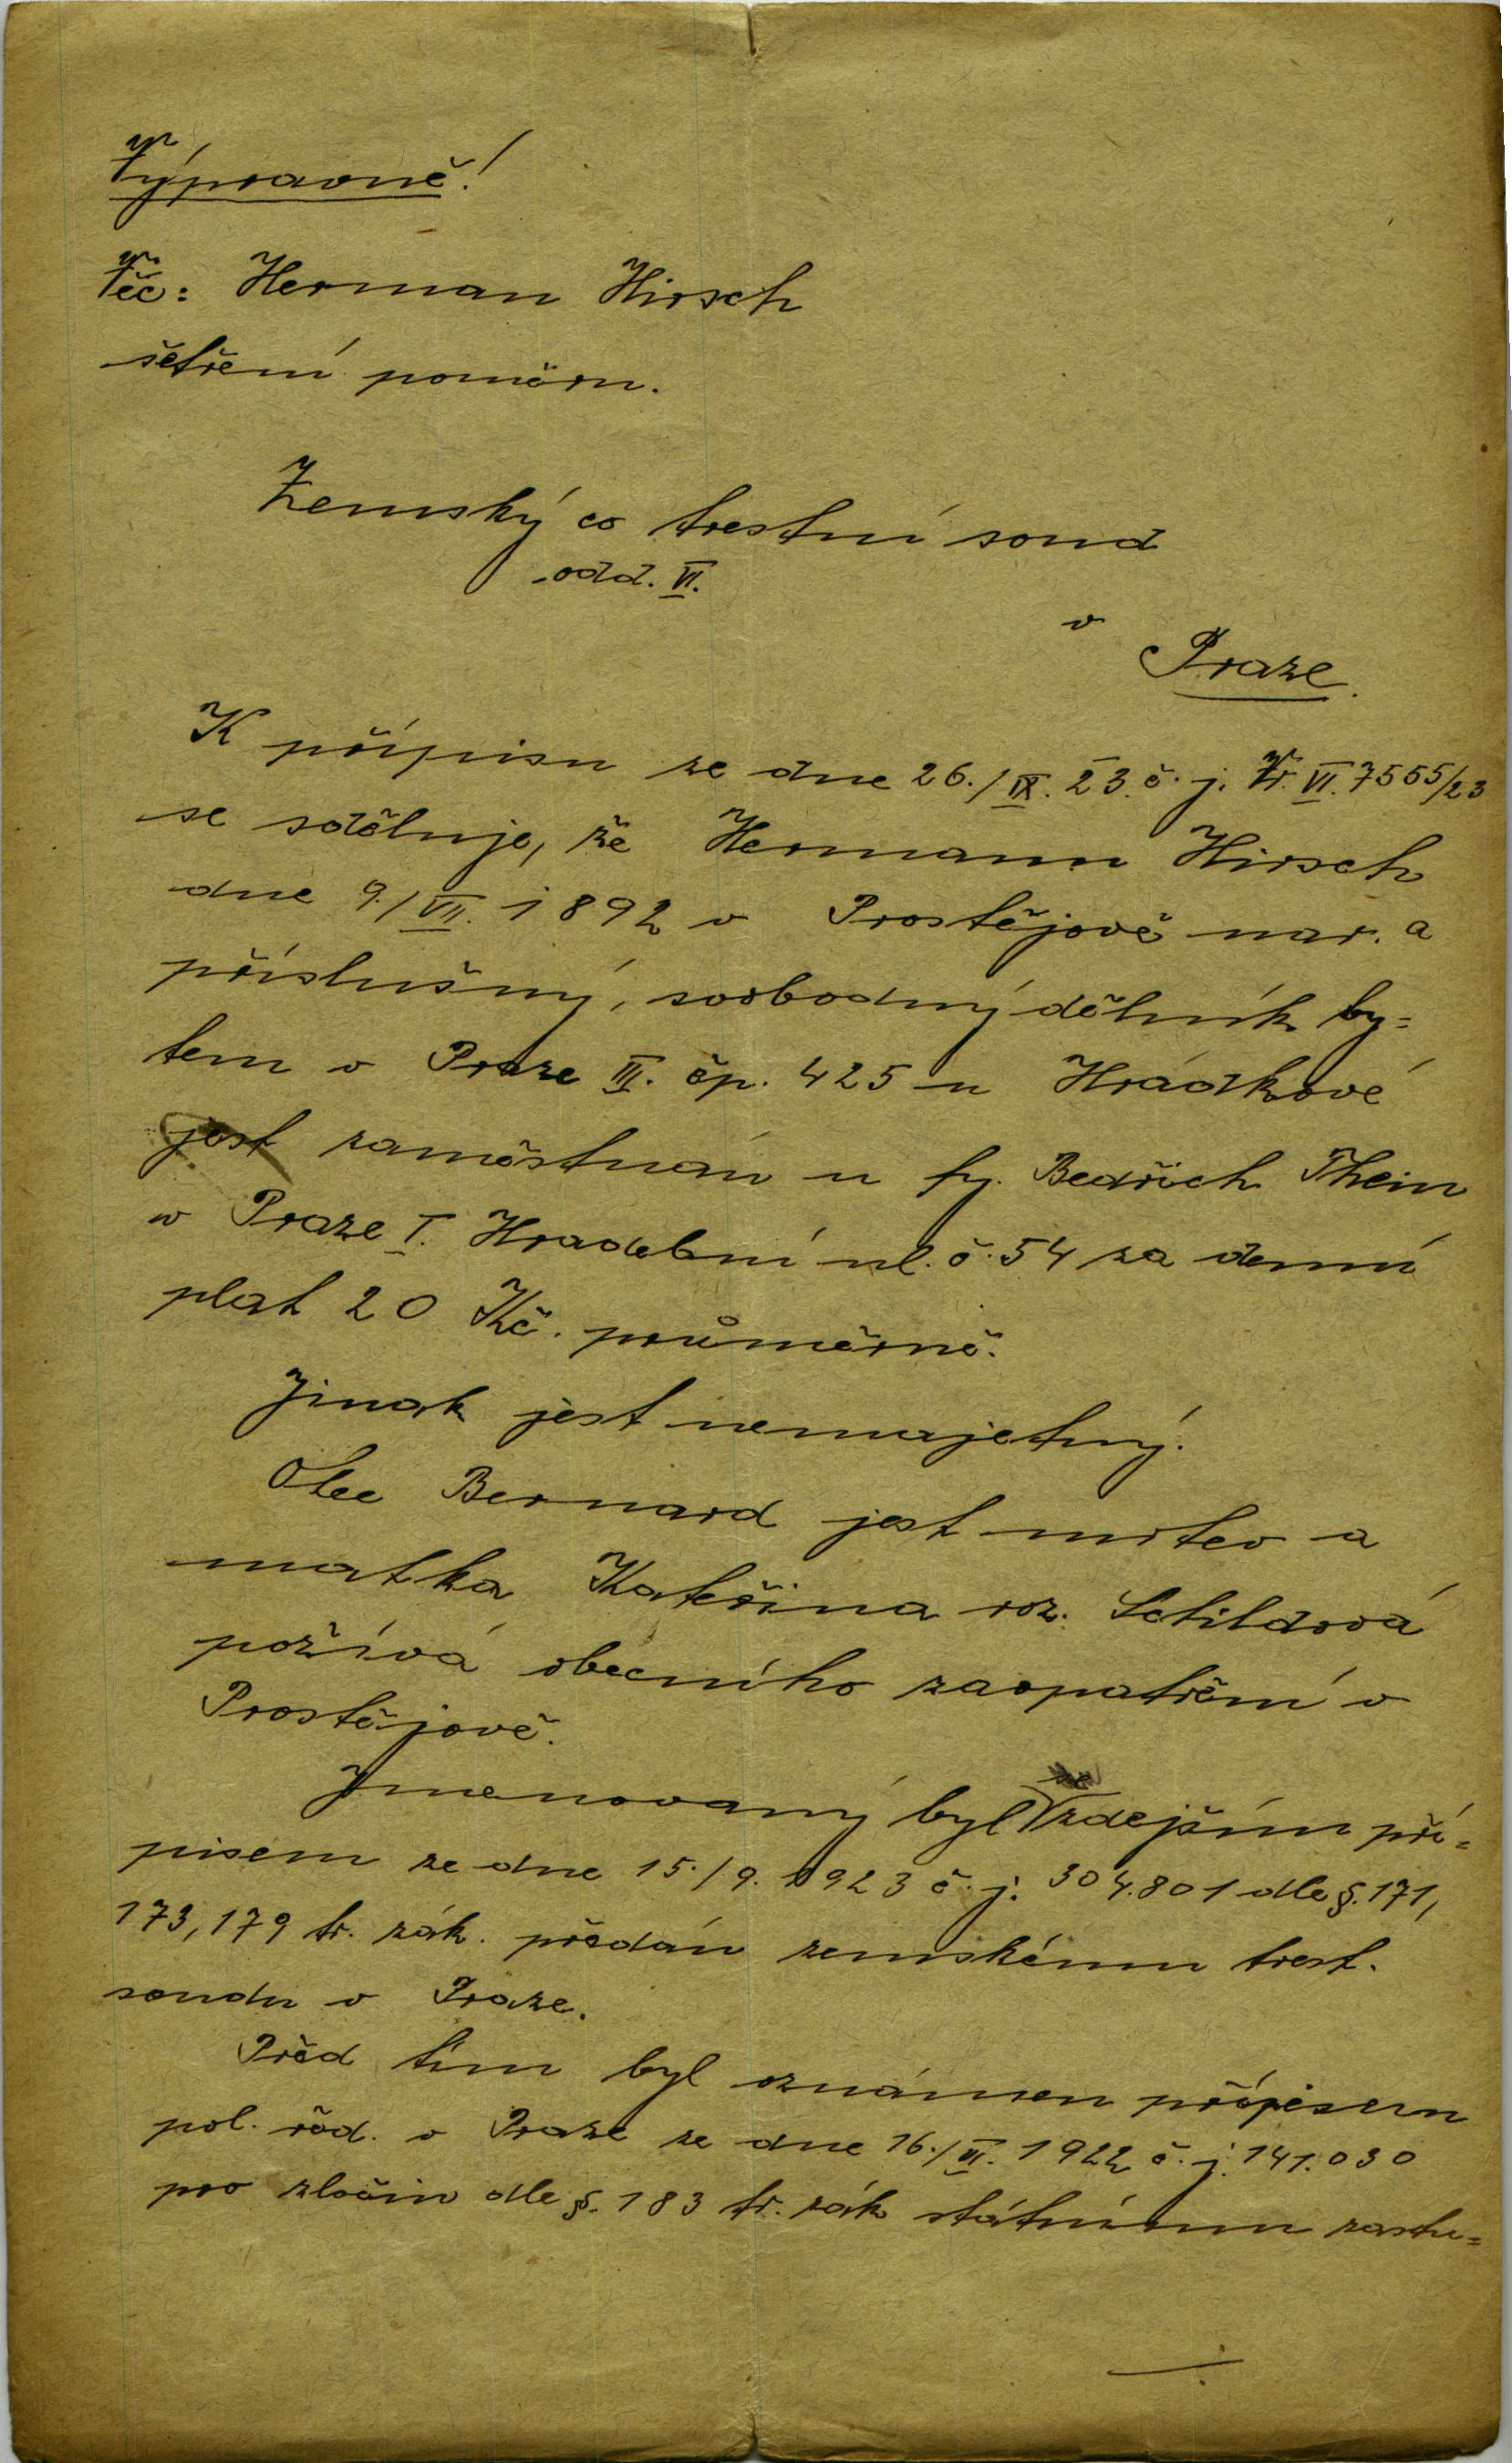 Výpravně!
Věc: Herman Hirsch
šetření poměru.
Zemský co trestní soud
odd. VI.
v
Praze.
K přípisu ze dne 26./IX. 23. č. j. Vr. VI. 7555/23
se sděluje, že Hermann Hirsch
dne 9./VII. 1892 v Prostějově nar. a
příslušný, svobodný dělník by=
tem v Praze III. čp. 425 u Hrádkové
jest zaměstnán u fy. Bedřich Thein
v Praze I. Hradební ul. č. 54 za denní
plat 20 Kč. průměrně.
Jinak jest nemajetný.
Otec Bernard jest mrtev a
matka Kateřina roz. Schildrová
požívá obecního zaopatření v
Prostějově.
Jmenovaný byl zdejším pří=
pisem ze dne 15./9. 1923 č. j. 304.801 dle §. 171,
173, 179 tr. zák. předán zemskému trest.
soudu v Praze.
Před tím byl oznámen přípisem
pol. řed. v Praze ze dne 16./VI. 1922 č. j. 141.030
pro zločin dle §. 183 tr. zák státnímu zastu=